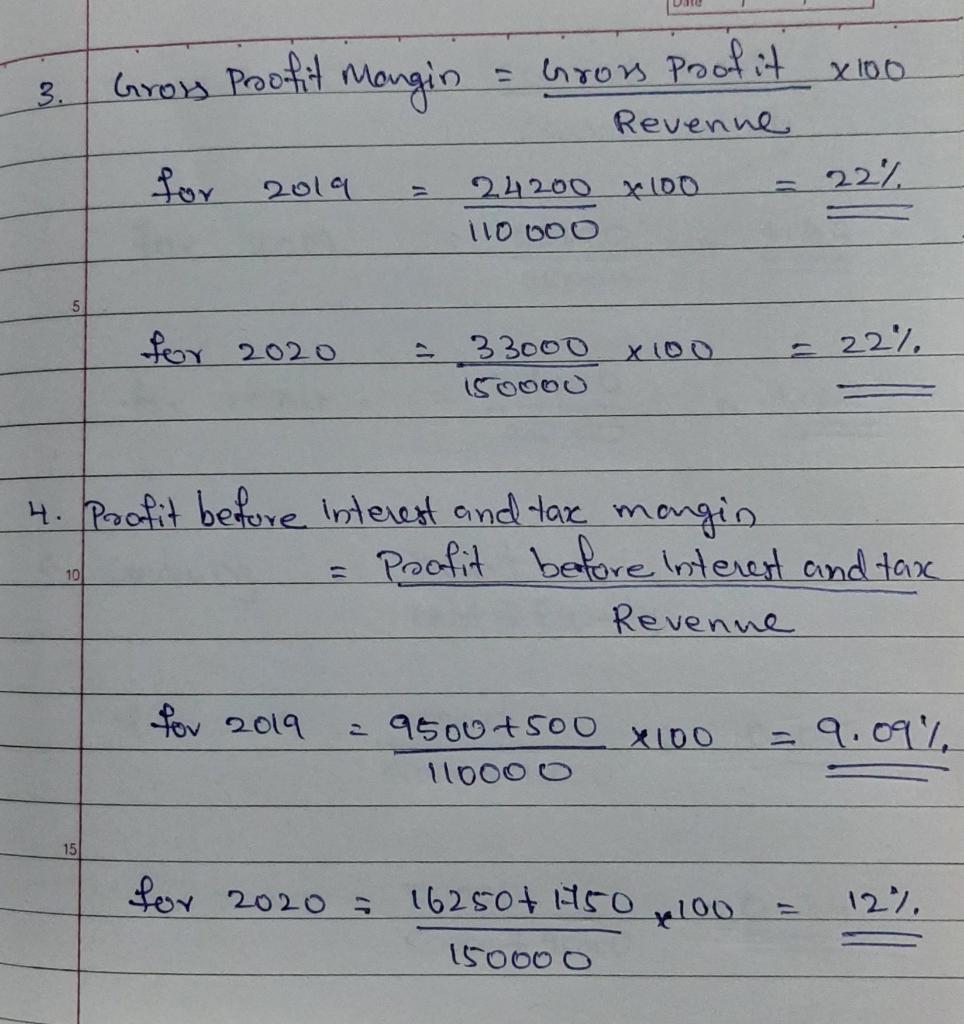 Date
3. Gross Profit Margin = Gross Profit x100
Revenue
for 2019 = 24200 x100 = 22%
110000
5
for 2020 = 33000 x100 = 22%
150000
4. Profit before interest and tax margin
10 = Profit before interest and tax
Revenue
for 2019 = 9500+500 x100 = 9.09%
110000
15
for 2020 = 16250+1750 x100 = 12%
150000